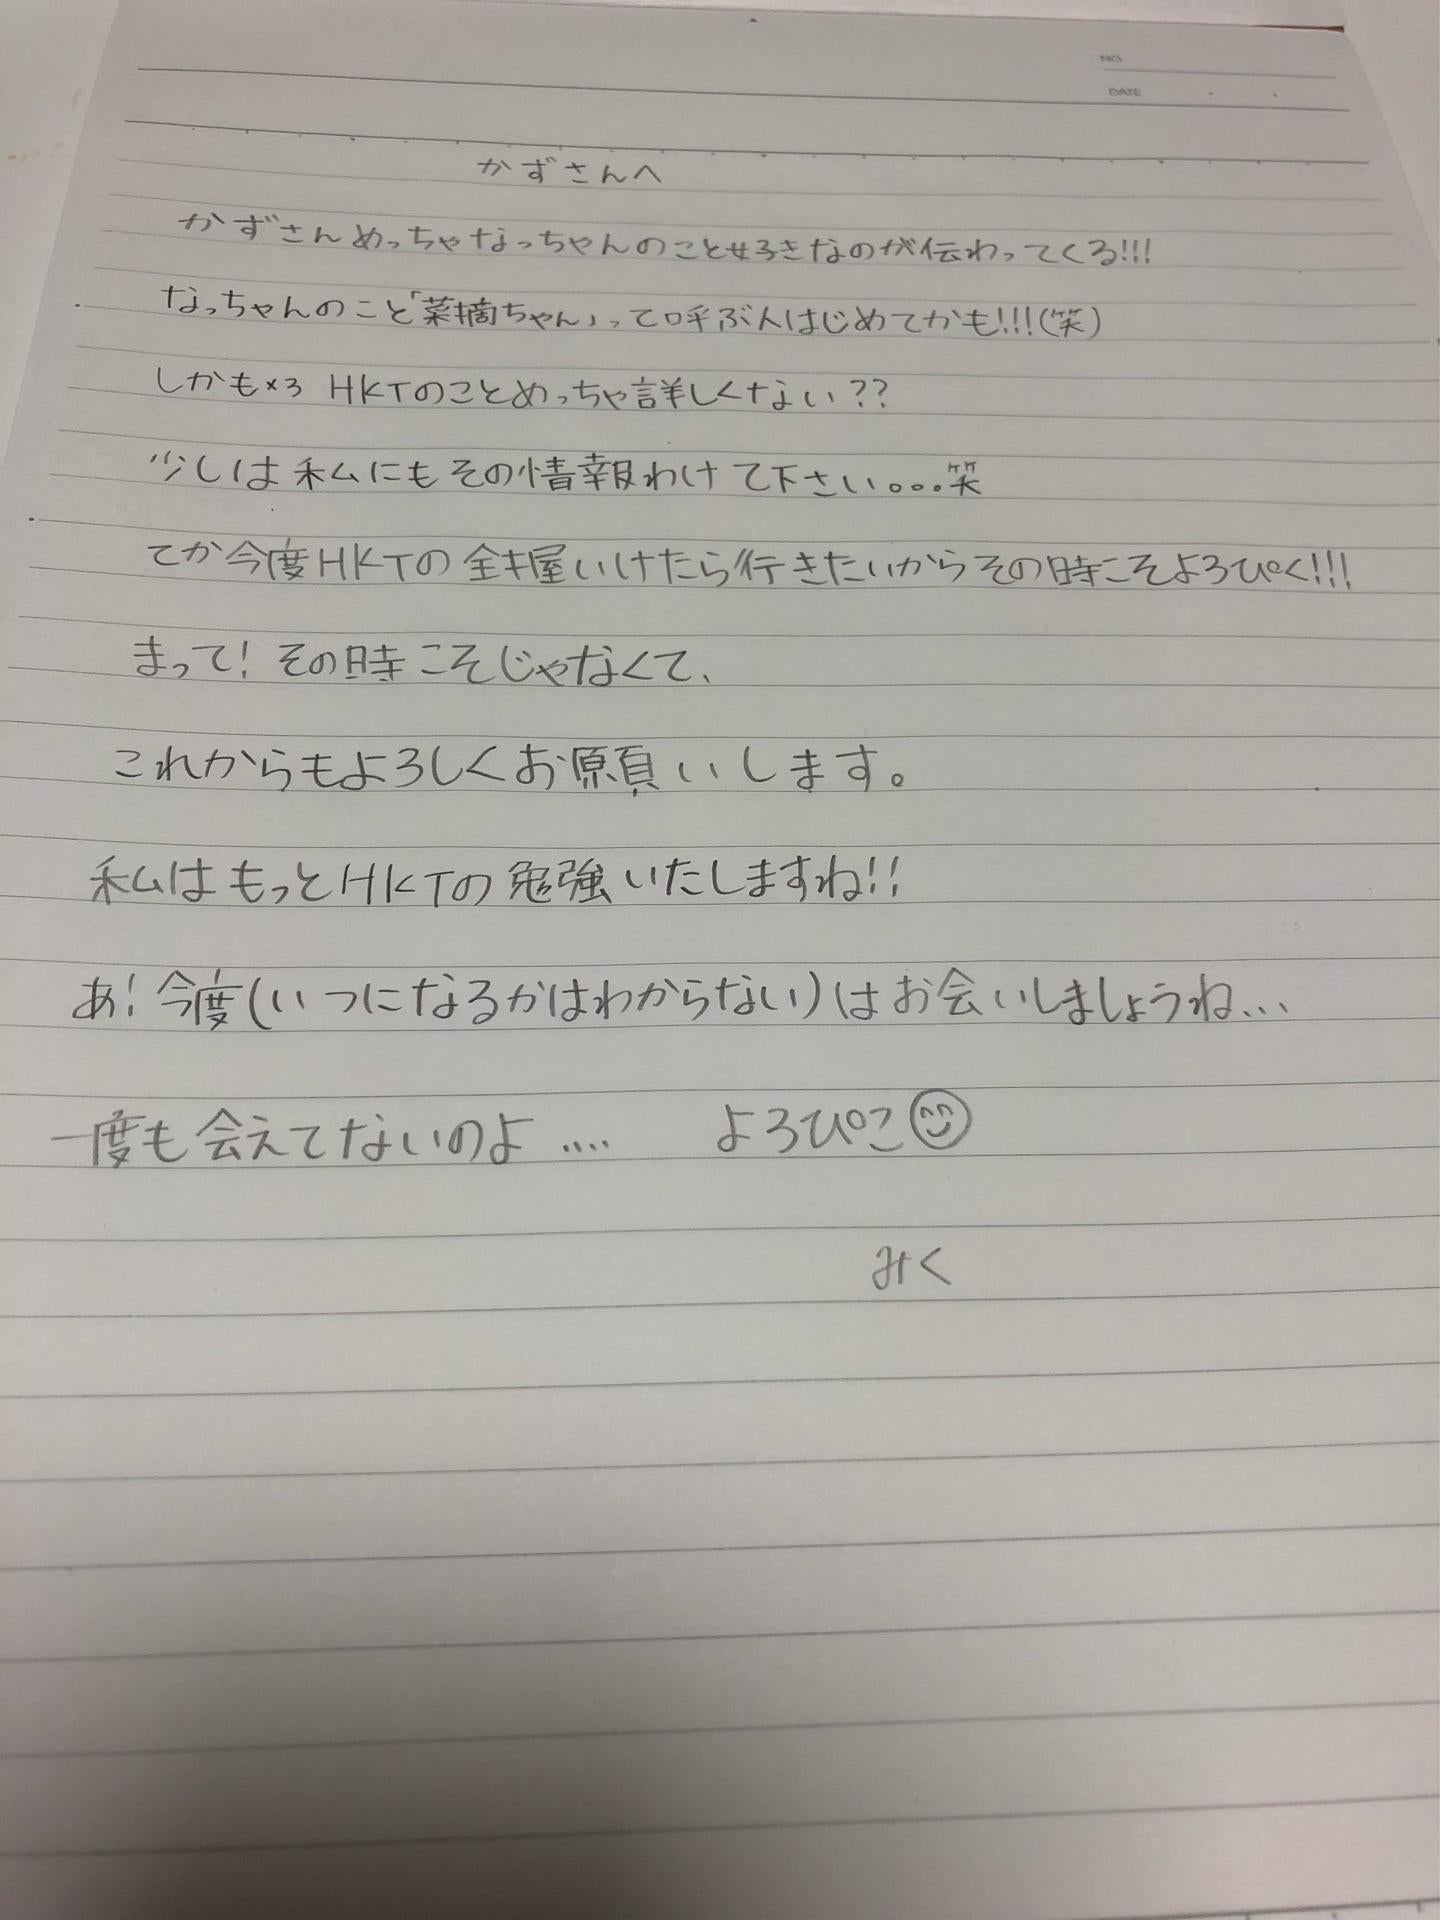 NO.
DATE
かずさんへ
かずさんめっちゃなっちゃんのこと好きなのが伝わってくる!!!
なっちゃんのこと「菜摘ちゃん」って呼ぶ人はじめてかも!!!(笑)
しかも×3 HKTのことめっちゃ詳しくない??
少しは私にもその情報わけて下さい。。。笑
てか今度HKTの全握いけたら行きたいからその時こそよろぴく!!!
まって!その時こそじゃなくて、
これからもよろしくお願いします。
私はもっとHKTの勉強いたしますね!!
あ!今度(いつになるかはわからない)はお会いしましょうね...
一度も会えてないのよ.... よろぴこ
みく